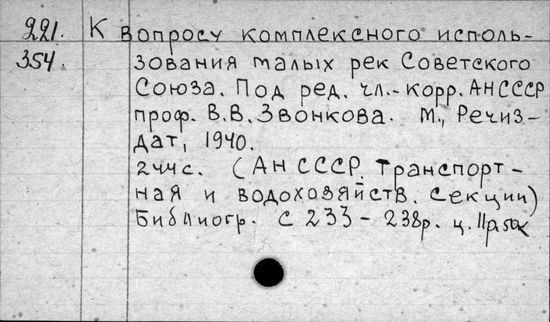 221. К вопросу комплексного исполь-
354. зования малых рек Советского
Союза. Под ред. чл.-корр. АН СССР
проф. В.В. Звонкова. М., Речиз-
дат, 1940.
244с. (АН СССР. Транспорт-
ная и водохозяйств. секции)
Библиогр. с 233 - 238р. ц. 11р.50к